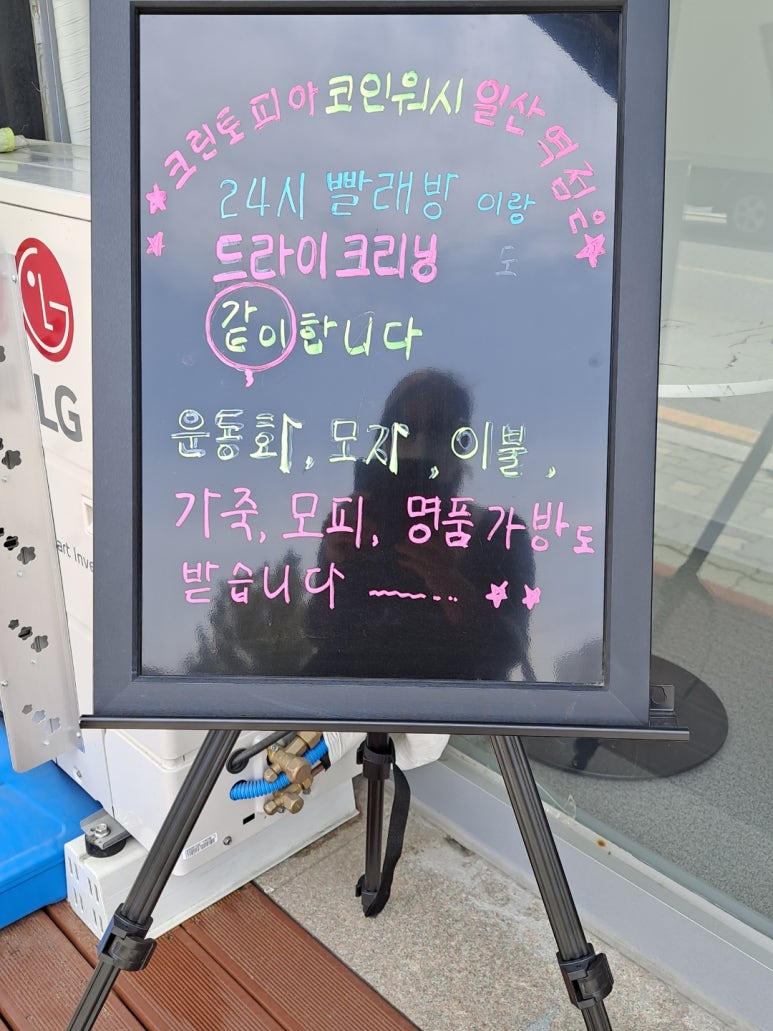 ★★크린토피아 코인워시 일산역점은★
24시 빨래방 이랑
드라이크리닝 도
같이합니다
운동화, 모자, 이불,
가죽, 모피, 명품가방도
받습니다 ~~~... ★★
LG
LG
art Inve